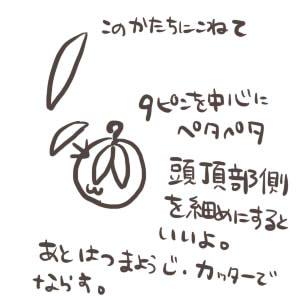 このかたちにこねて
9ピンを中心に
ペタペタ
頭頂部側
を細めにすると
いいよ。
あとはつまようじ・カッターで
ならす。